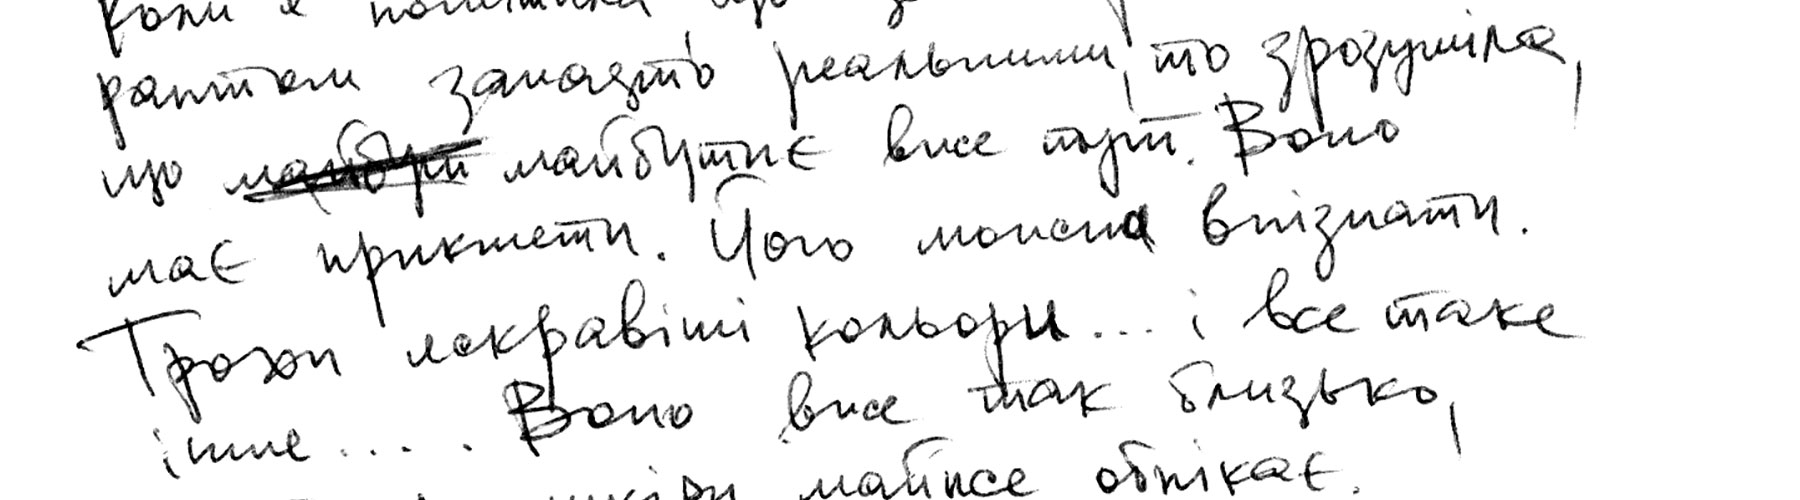 коли є політика що з
раптом занадто реальними, то зрозуміла,
що майбут майбутнє вже тут. Воно
має прикмети. Його можна впізнати.
Трохи яскравіші кольори... і все таке
інше..... Воно вже так близько,
шкіри майже обпікає.